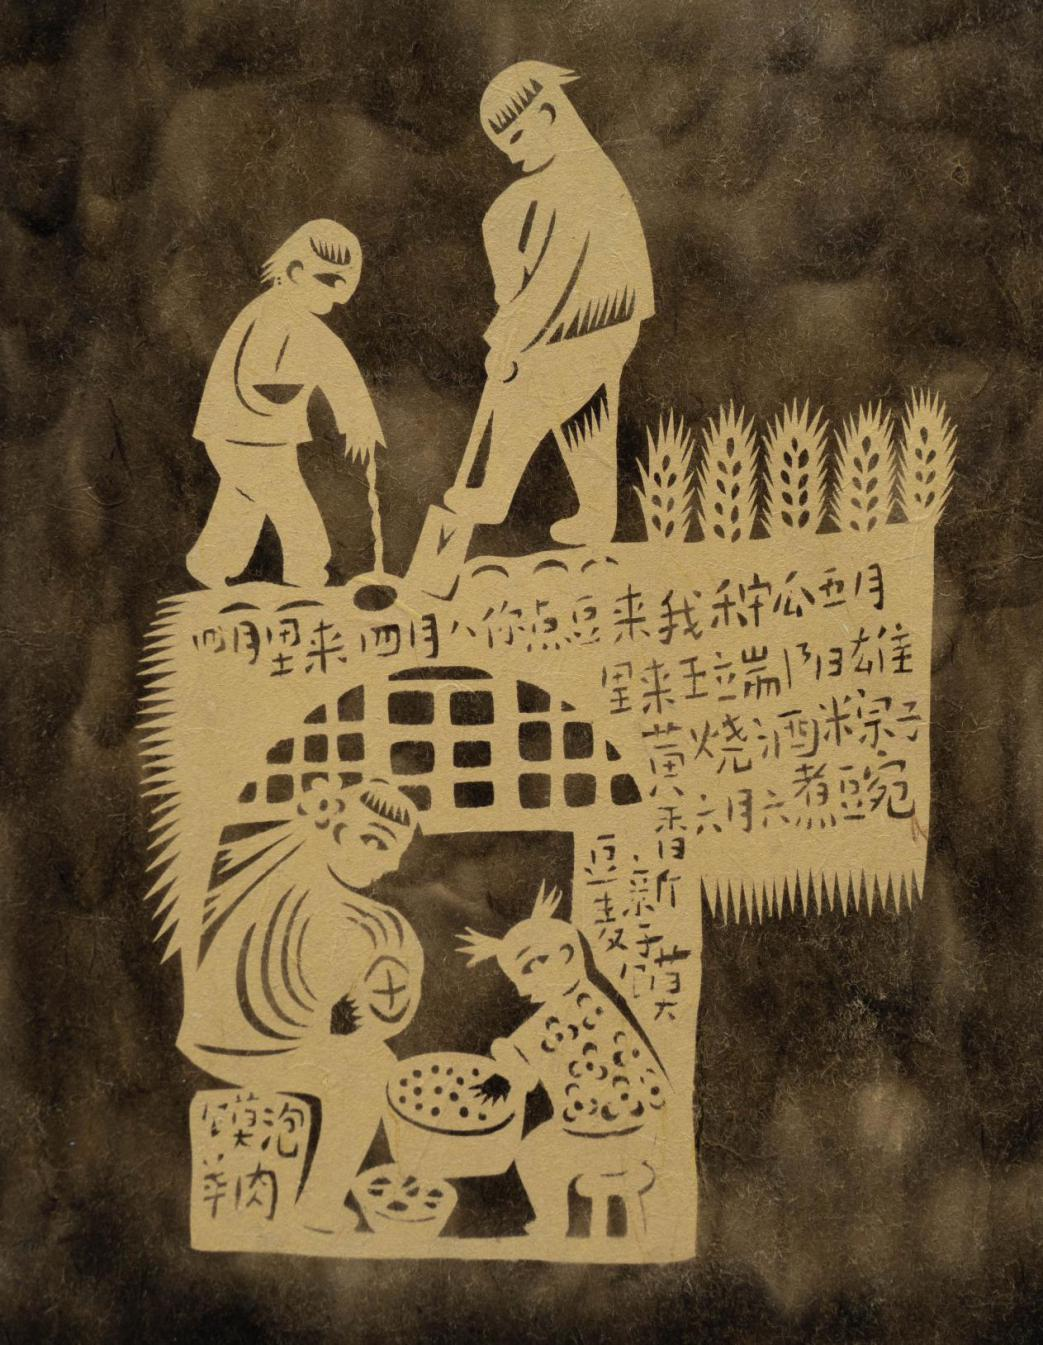 四月里来四月八你点豆来我秤公五月
里来王端阳雄
黄烧酒粽子
香六月六煮豆宛
豆新
麦子
馍
馍泡
羊肉